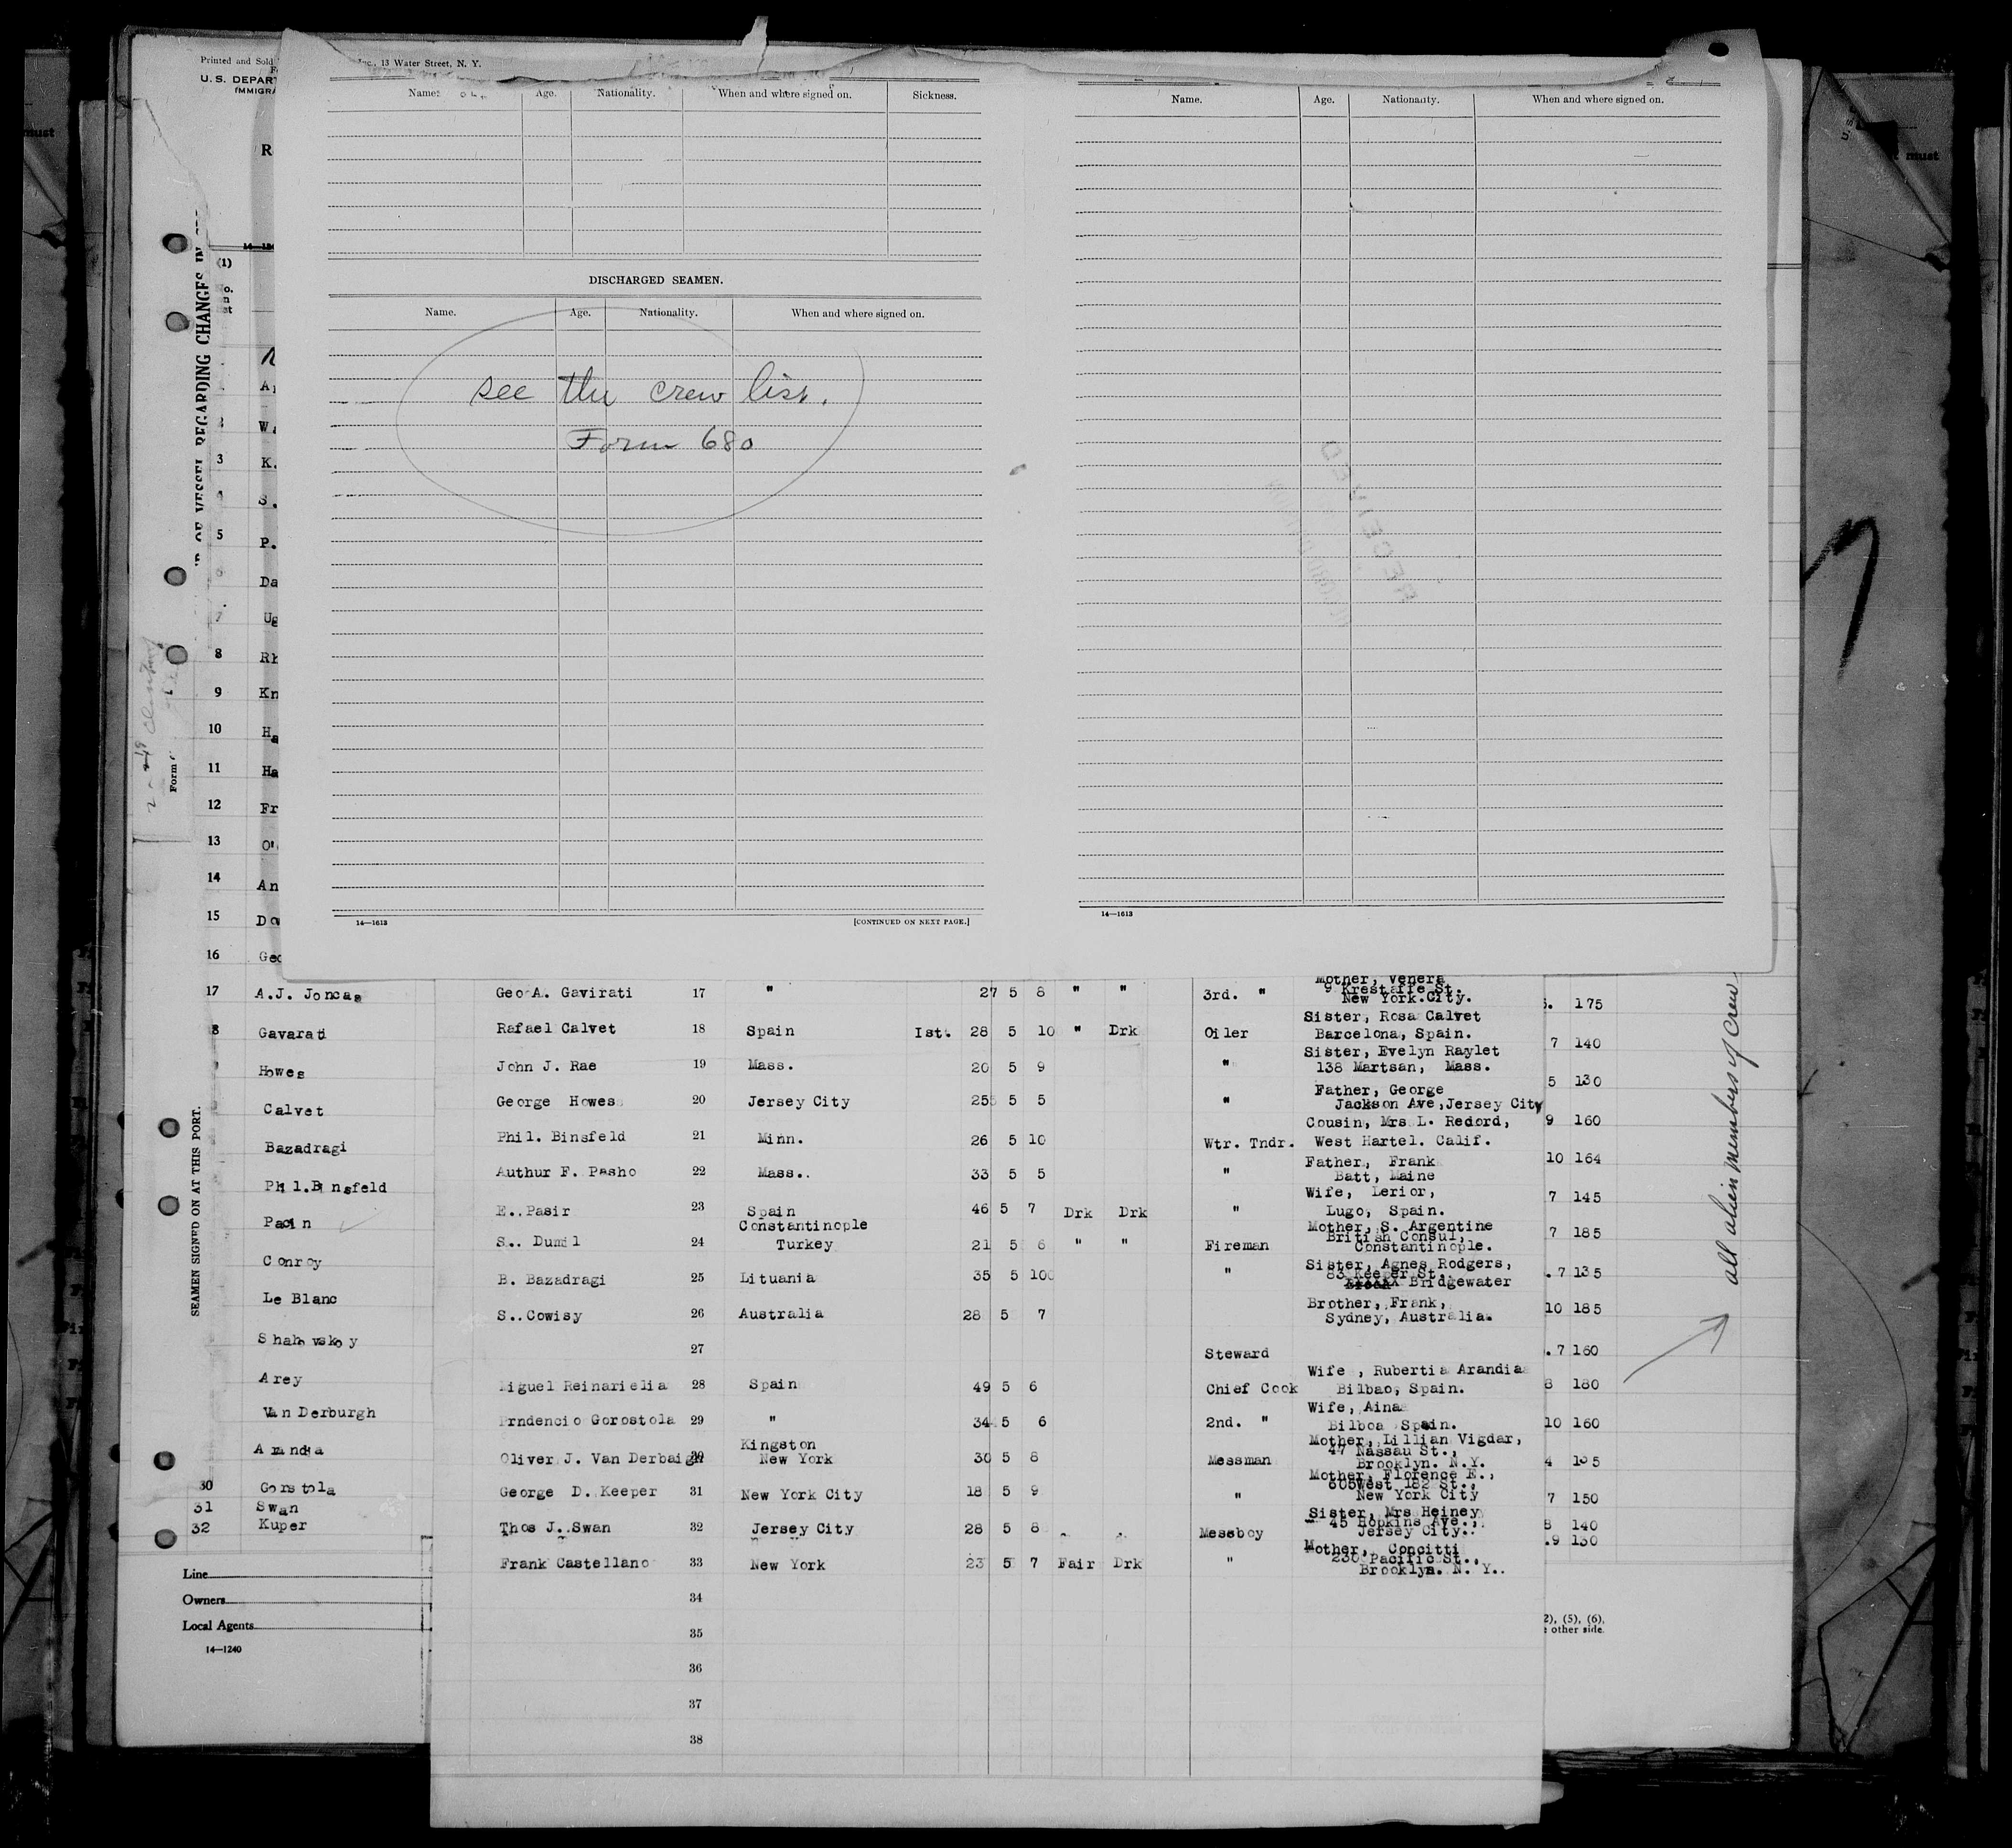 Printed and Sold
Inc., 13 Water Street, N. Y.
U. S. DEPAR
IMMIGRA
Name. Age. Nationality. When and where signed on. Sickness.
Name. Age. Nationality. When and where signed on.
DISCHARGED SEAMEN.
Name. Age. Nationality. When and where signed on.
see the crew list.
Form 680
RECEIVED
14—1613 [CONTINUED ON NEXT PAGE.]
14—1613
OF VESSEL REGARDING CHANGES IN
SEAMEN SIGNED ON AT THIS PORT.
Form
(1)
3 K.
S.
5 P.
Da
7 Ug
8 Rh
9 Kn
10 Ha
11 Ha
12 Fr
13 O'
14 An
15 Do
16 Geo
17 A.J. Joncas
8 Gavarati
Howes
Calvet
Bazadragi
Phil.Binsfeld
Pacin
Conroy
Le Blanc
Shahovskoy
Arey
Van Derburgh
Arandia
30 Gorstola
31 Swan
32 Kuper
Line
Owners
Local Agents
14—1240
Mother, Venera
9 Krestaffe St.
Geo A. Gavirati 17 " 27 5 8 " " 3rd. " New York.City. 175
Sister, Rosa Calvet
Rafael Calvet 18 Spain Ist. 28 5 10 " Drk Oiler Barcelona, Spain. 7 140
Sister, Evelyn Raylet
John J. Rae 19 Mass. 20 5 9 " 138 Martsan, Mass. 5 130
Father, George
George Howes 20 Jersey City 25 5 5 " Jackson Ave,Jersey City
Cousin, Mrs L. Redord, 9 160
Phil. Binsfeld 21 Minn. 26 5 10 Wtr. Tndr. West Hartel. Calif.
Father, Frank 10 164
Authur F. Pasho 22 Mass.. 33 5 5 " Batt, Maine
Wife, Lerior, 7 145
E..Pasir 23 Spain 46 5 7 Drk Drk " Lugo, Spain.
Constantinople Mother, S. Argentine
British Consul, 7 185
S.. Dumil 24 Turkey 21 5 6 " " Fireman Constantinople.
Sister, Agnes Rodgers,
83 Keeper St. . 7 135
B. Bazadragi 25 Lituania 35 5 10 " Bridgewater
Brother, Frank, 10 185
S..Cowisy 26 Australia 28 5 7 Sydney, Australia.
27 Steward . 7 160
Wife , Rubertia Arandia
iguel Reinarielia 28 Spain 49 5 6 Chief Cook Bilbao, Spain. 8 180
Wife, Aina
Prndencio Gorostola 29 " 34 5 6 2nd. " Bilboa Spain. 10 160
Kingston Mother, Lillian Vigdar,
47 Nassau St.,
Oliver J. Van Derbaigh 30 New York 30 5 8 Messman Brooklyn. N.Y. 4 135
Mother, Florence E.,
605West 182 St.,
George D. Keeper 31 New York City 18 5 9 " New York City 7 150
Sister, Mrs Heiney
45 Hopkins Ave., 8 140
Thos J..Swan 32 Jersey City 28 5 8 Messboy Jersey City.. .9 130
Mother, Concitti
230 Pacific St.,
Frank Castellano 33 New York 23 5 7 Fair Drk " Brooklyn. N. Y..
34
35
36
37
38
2), (5), (6).
other side.
all alien members of crew
must
must